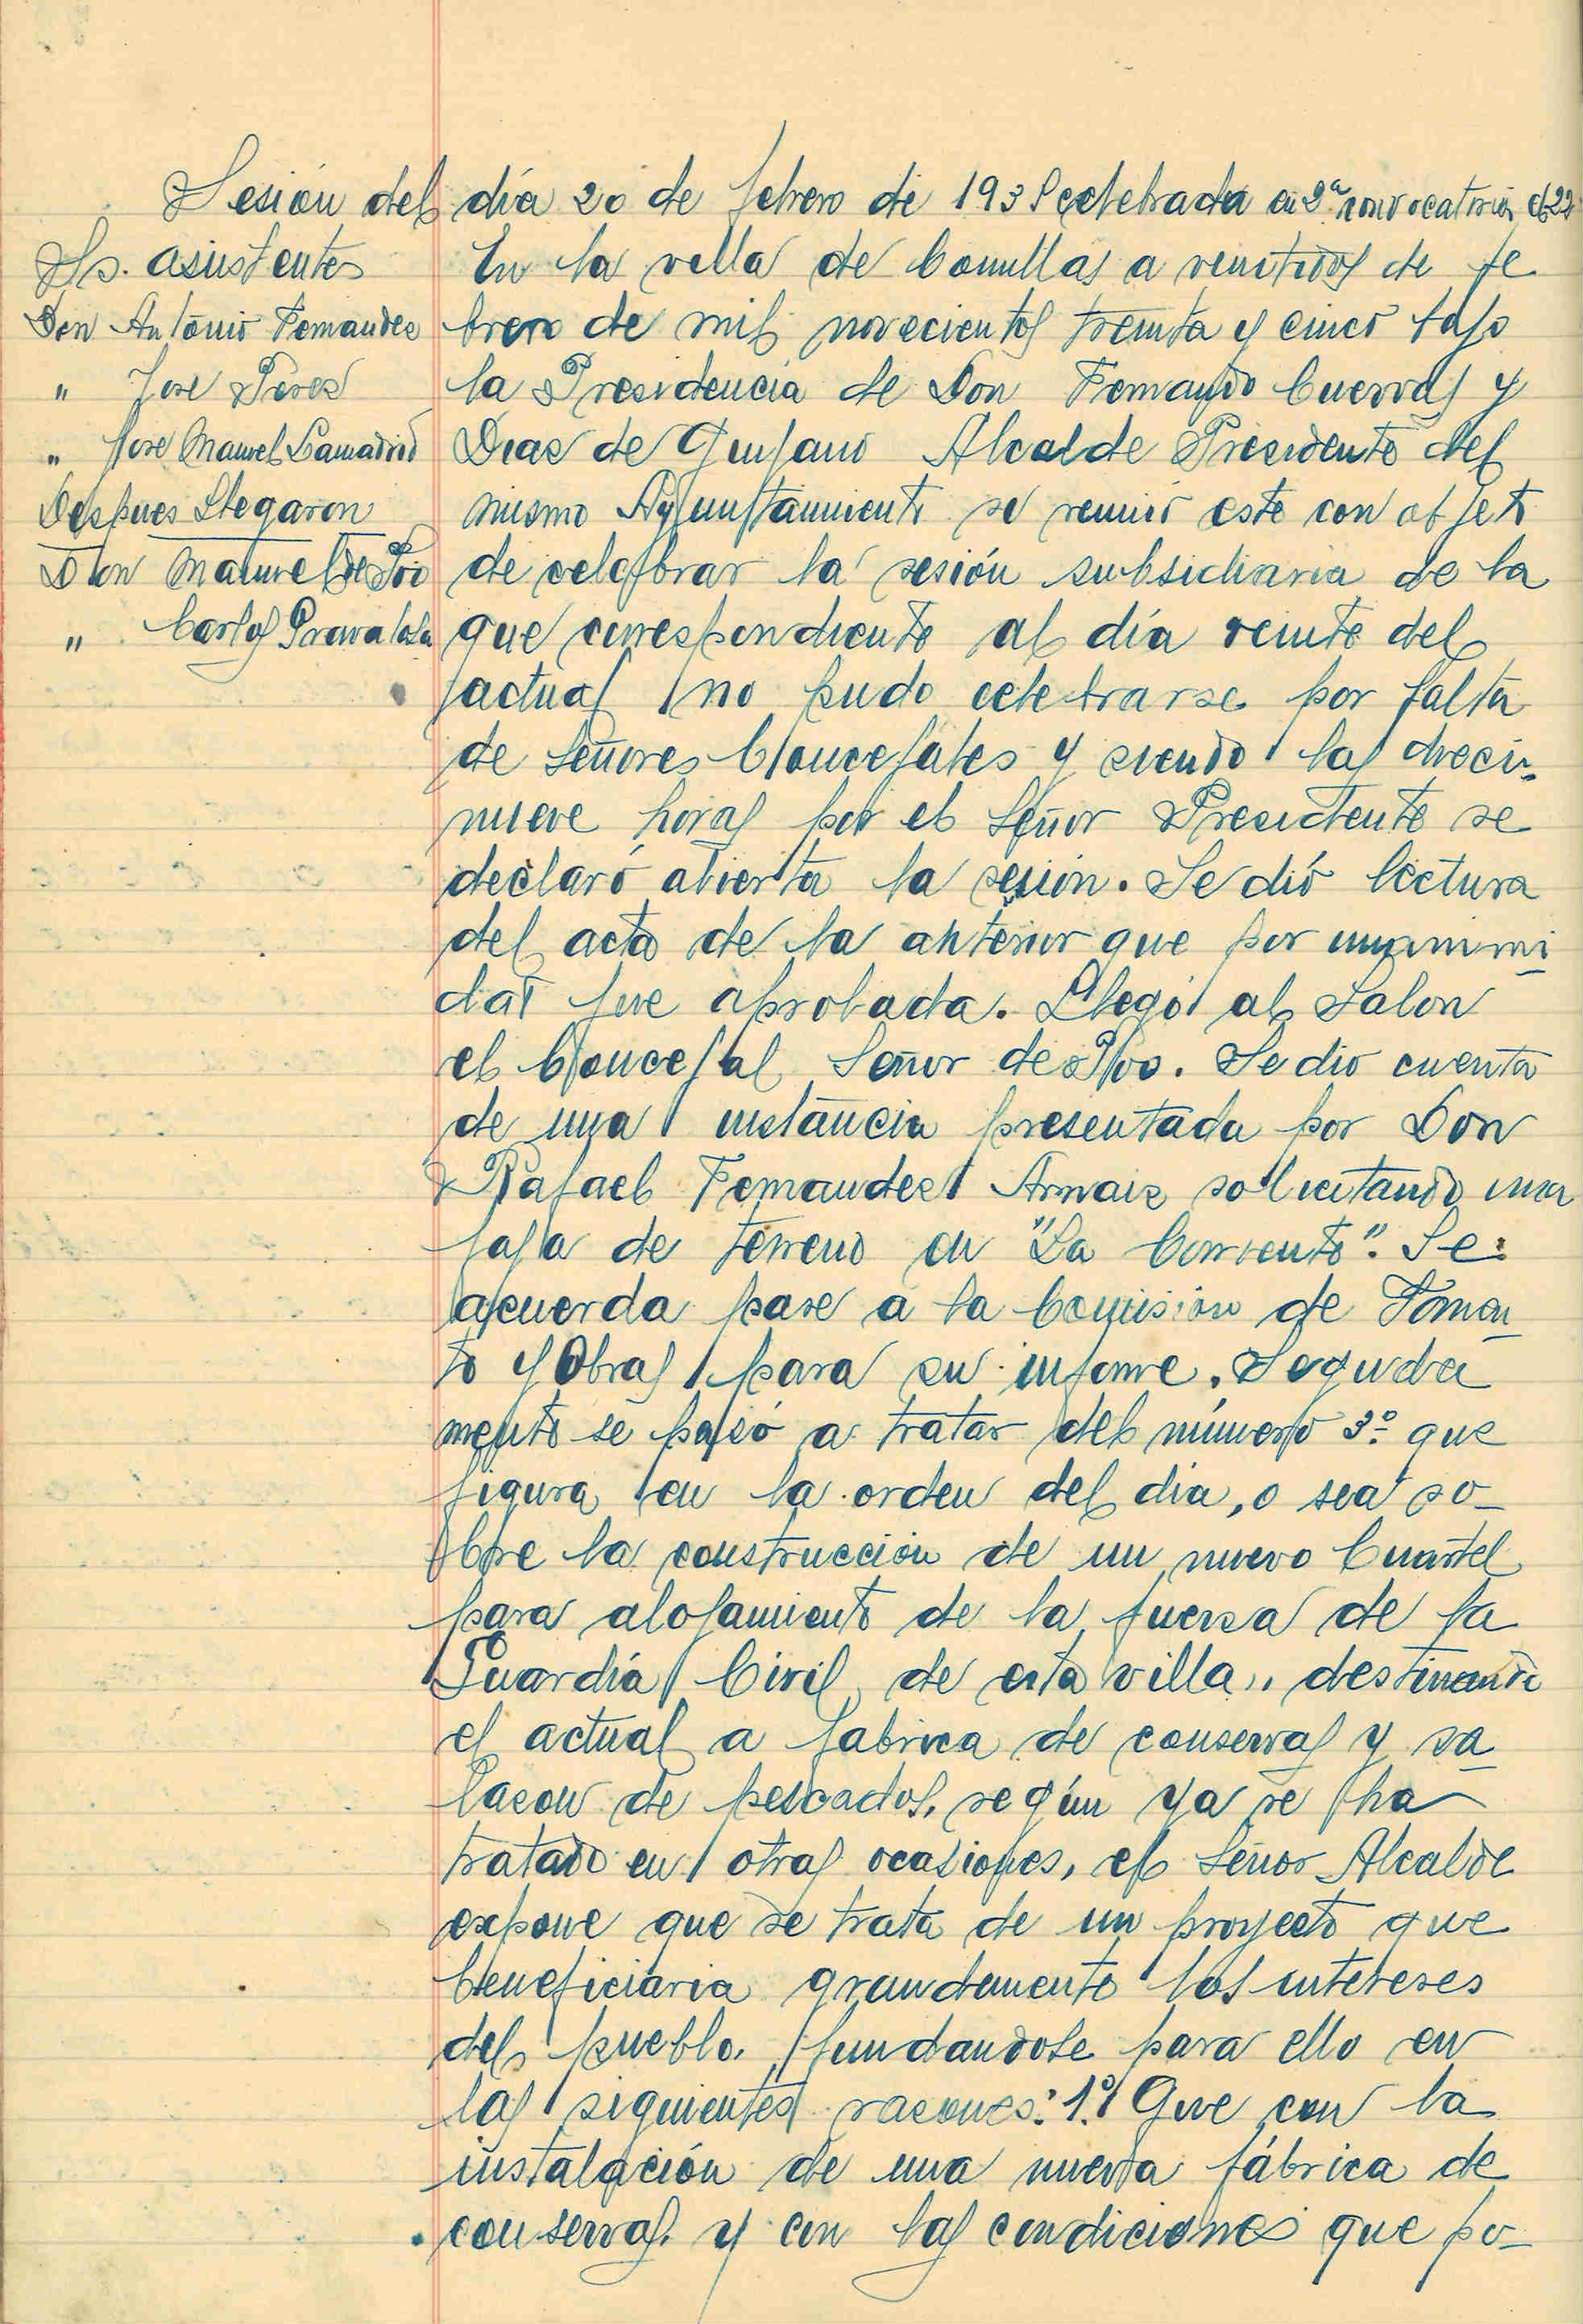 Sesión del día 20 de febrero de 1935 celebrada en 2ª convocatoria el 22
Srs. asistentes
Don Antonio Fernandez
" Jose Perez
" Jose Manuel Lamadrid
Despues Llegaron
Don Manuel de Poo
" Carlos
En la villa de Comillas a veintidos de fe
brero de mil novecientos treinta y cinco bajo
la Presidencia de Don Fernando Cuevas y
Diaz de Quijano Alcalde Presidente del
mismo Ayuntamiento se reunió este con objeto
de celebrar la sesión subsidiaria de la
que correspondiente al día veinte del
actual no pudo celebrarse por falta
de señores Concejales y siendo las dieci-
nueve horas por el Señor Presidente se
declaró abierta la sesión. Se dió lectura
del acta de la anterior que por unanimi
dad fue aprobada. Llegó al Salon
el Concejal Señor de Poo. Se dio cuenta
de una instancia presentada por Don
Rafael Fernandez Arnaiz solicitando una
faja de terreno en "La Corriente". Se
acuerda pase a la Comision de Fomen
to y Obras para su informe. Seguida
mente se pasó a tratar del número 3º que
figura en la orden del dia, o sea so-
bre la construccion de un nuevo Cuartel
para alojamiento de la fuerza de la
Guardía Civil de esta villa, destinando
el actual a fabrica de conservas y sa
lazon de pescados, según ya se ha
tratado en otras ocasiones, el Señor Alcalde
expone que se trata de un proyecto que
beneficiaria grandemente los intereses
del pueblo, fundandose para ello en
las siguientes razones: 1º Que con la
instalación de una nueva fábrica de
conservas y con las condiciones que po-